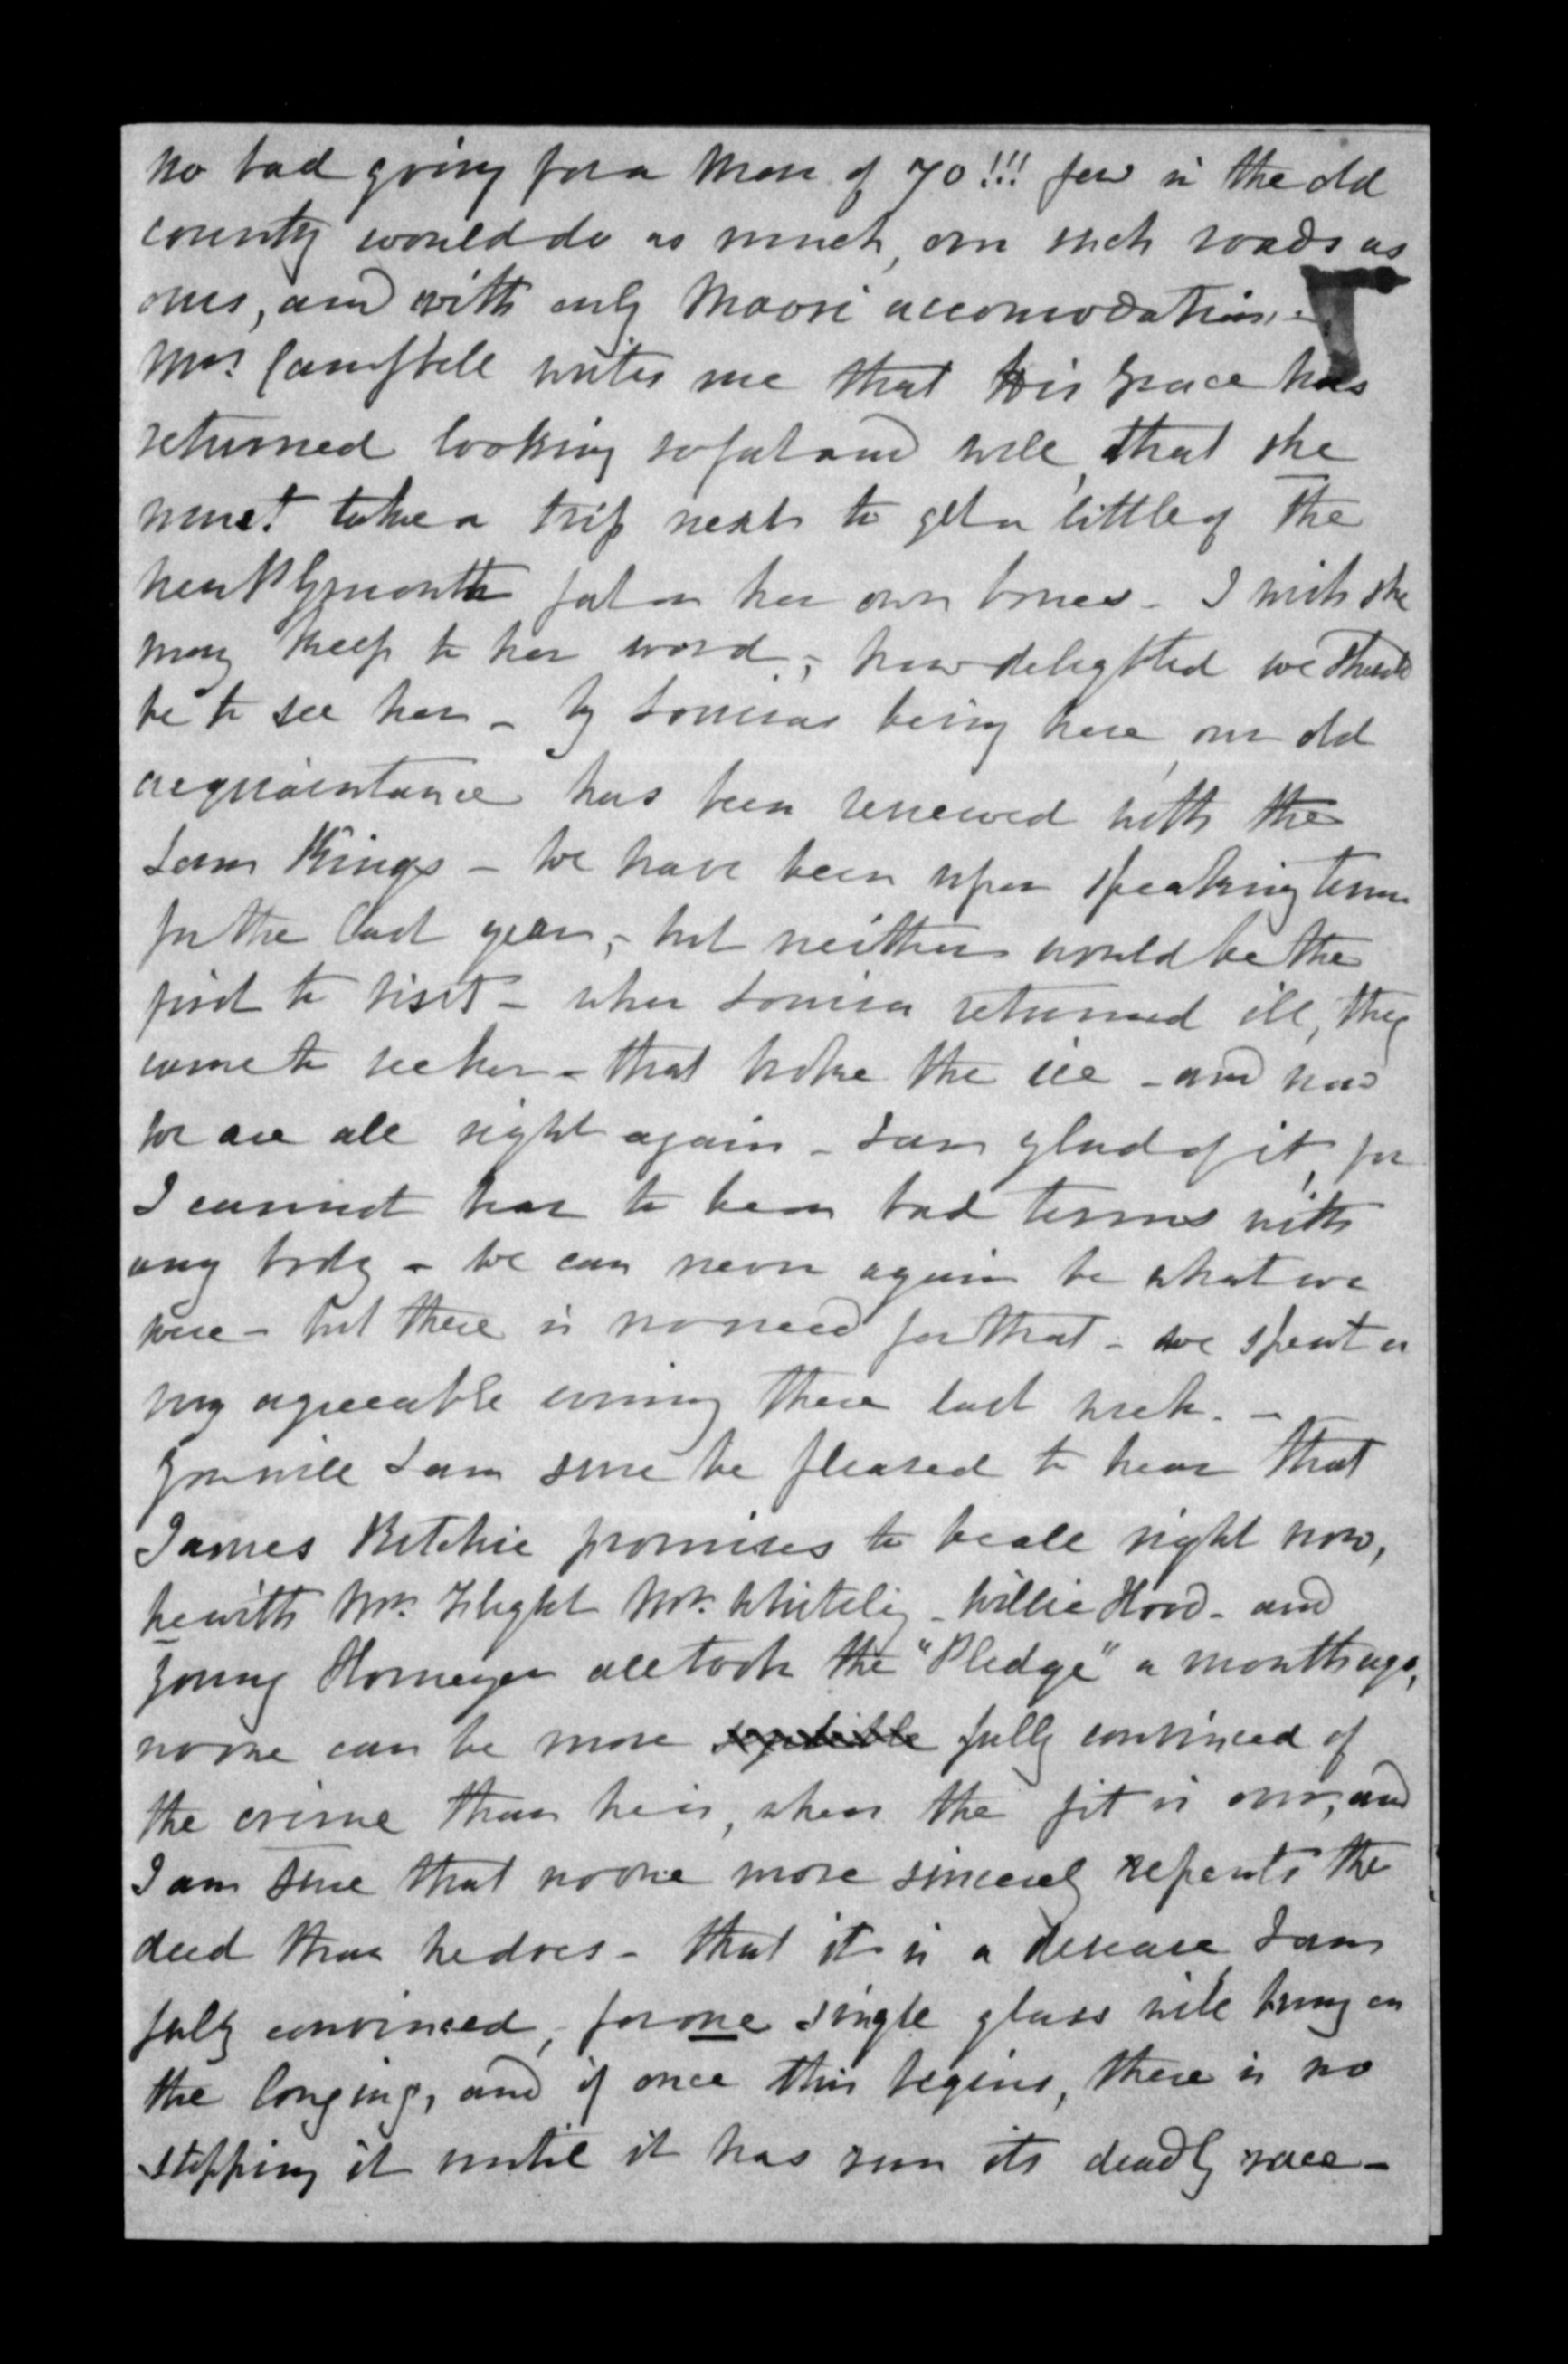 no bad going for a man of 70!!! few in the old
county would do as much, over such roads as
ours, and with only Maori accomodation.-
Mrs Campbell writes me that His Grace has
returned looking so fat and well, that she
must take a trip next to get a little of the
New Plymouth fat on her own bones - I wish she
may keep to her word, - how delighted we should
be to see her - By Louisas being here, our old
acquaintance has been renewed with the
Sam Kings - We have been upon speaking terms
for the last year, - but neither would be the
first to visit - when Louisa returned ill, they
came to see her - that broke the ice - and now
we are all right again - I am glad of it, for
I cannot bear to be on bad terms with
any body - We can never again be what we
were - but there is no need for that - we spent a
very agreeable evening there last week. -
You will I am sure be pleased to hear that
James Ritchie promises to be all right now,
he with Mr. Flight Mr. Whiteley - Willie Hood - and
young Horneyer all took the "Pledge" a month ago,
no one can be more fully convinced of
the crime than he is, when the fit is over, and
I am sure that no one more sincerely repents the
deed than he does - that it is a disease, I am
fully convinced, for one single glass will bring on
the longing, and if once this begins, there is no
stopping it until it has run its deadly race -